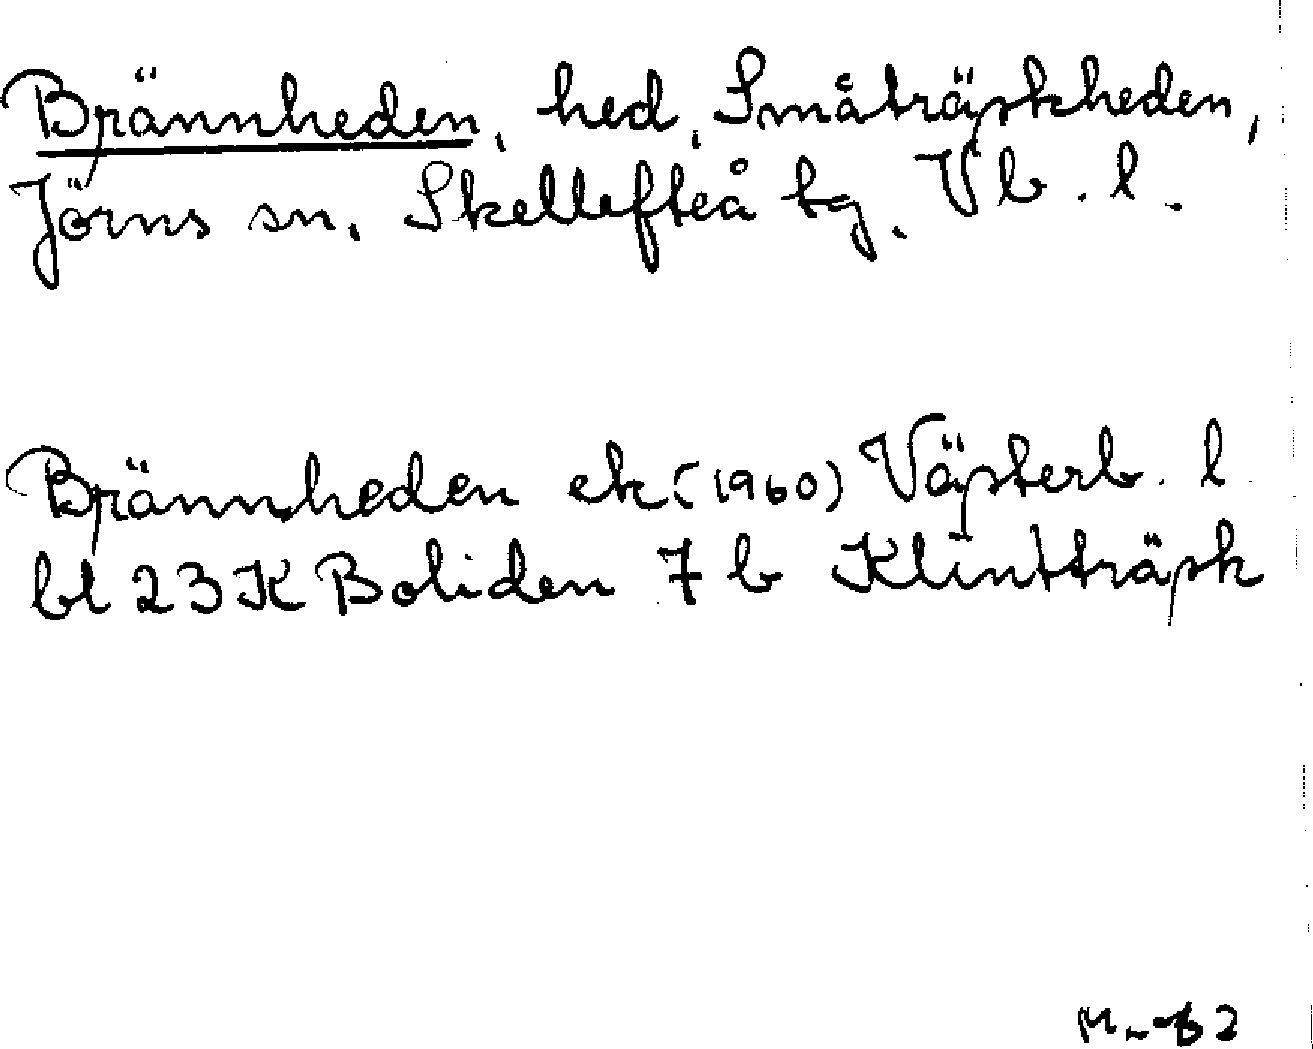 Brännheden, hed, Småträskheden,
Jörns sn. Skellefteå tg. Vb. l.
Brännheden ek (1960) Västerb. l
bl 23 K Boliden 7 b Klintträsk